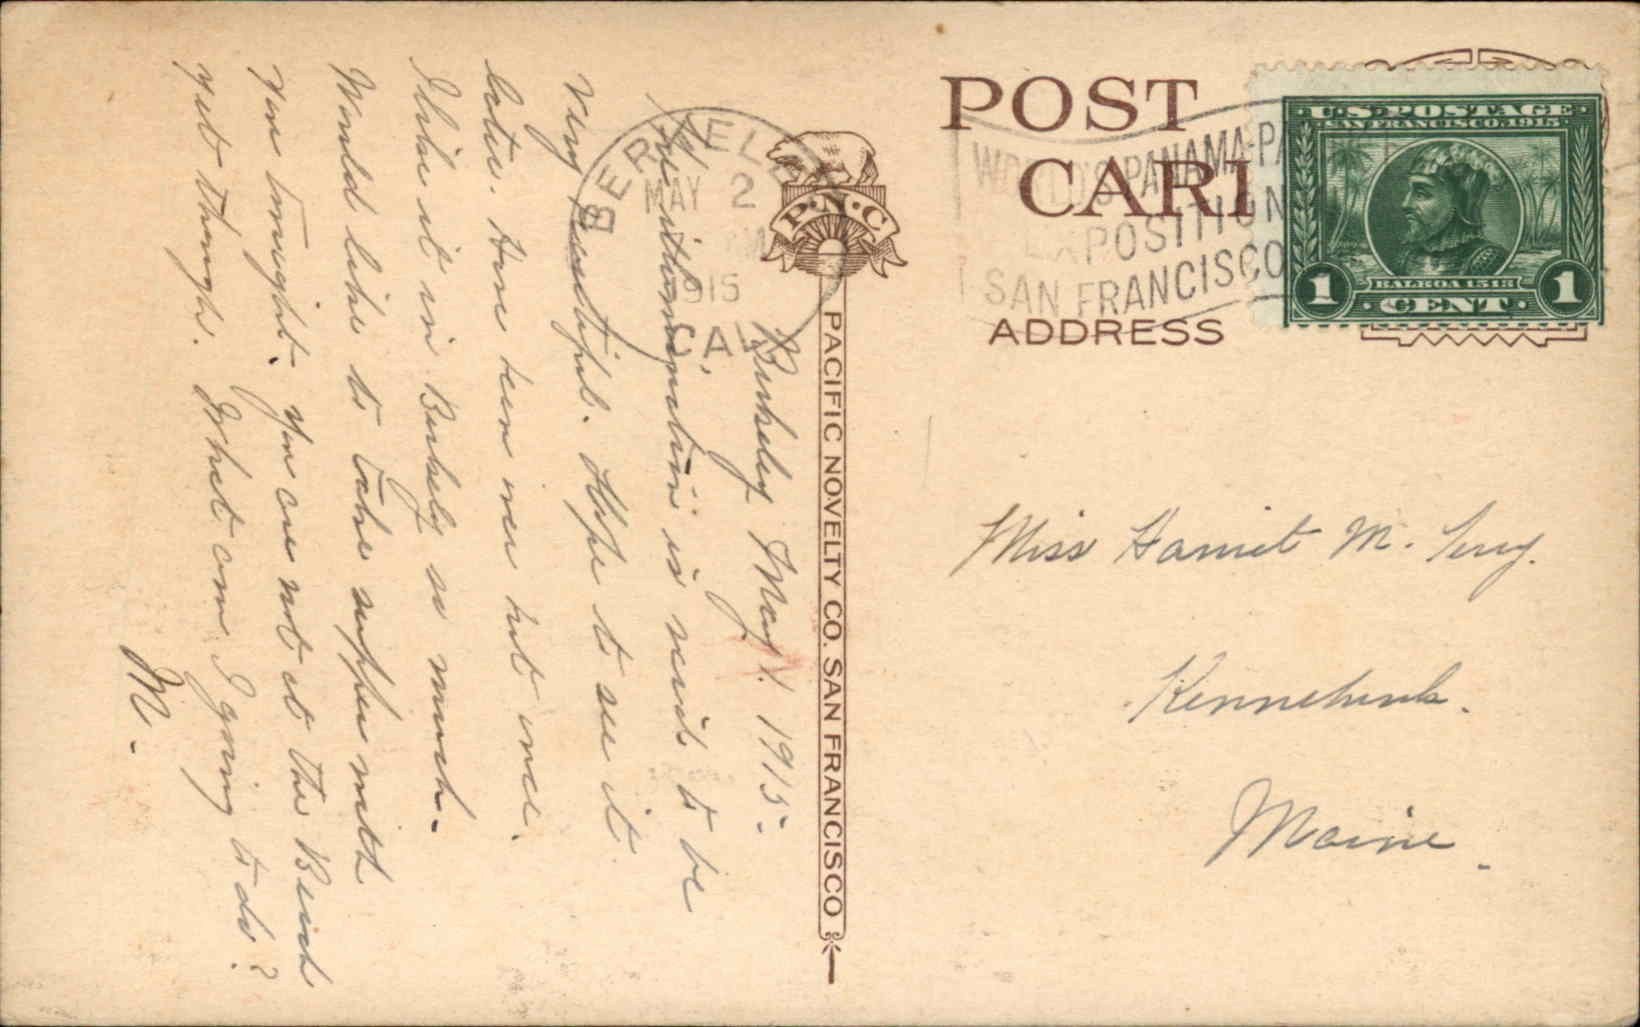 Berkeley May 1. 1915-
The illumination is said to be
very beautiful. Hope to see it
later. Have been over but once.
I like it in Berkely so much.
Would like to take supper with
you tonight. You are not at the Beach
yet though. What am I going to do?
M.
BERKELEY
MAY 2
1915
CAL.
P·N·C
PACIFIC NOVELTY CO. SAN FRANCISCO
POST
CARD
ADDRESS
WORLD'S PANAMA-PA
EXPOSITION
SAN FRANCISCO
U.S. POSTAGE
SAN FRANCISCO 1915
BALBOA 1513
1 CENT 1
Miss Harriet M.
Kennebunk.
Maine.